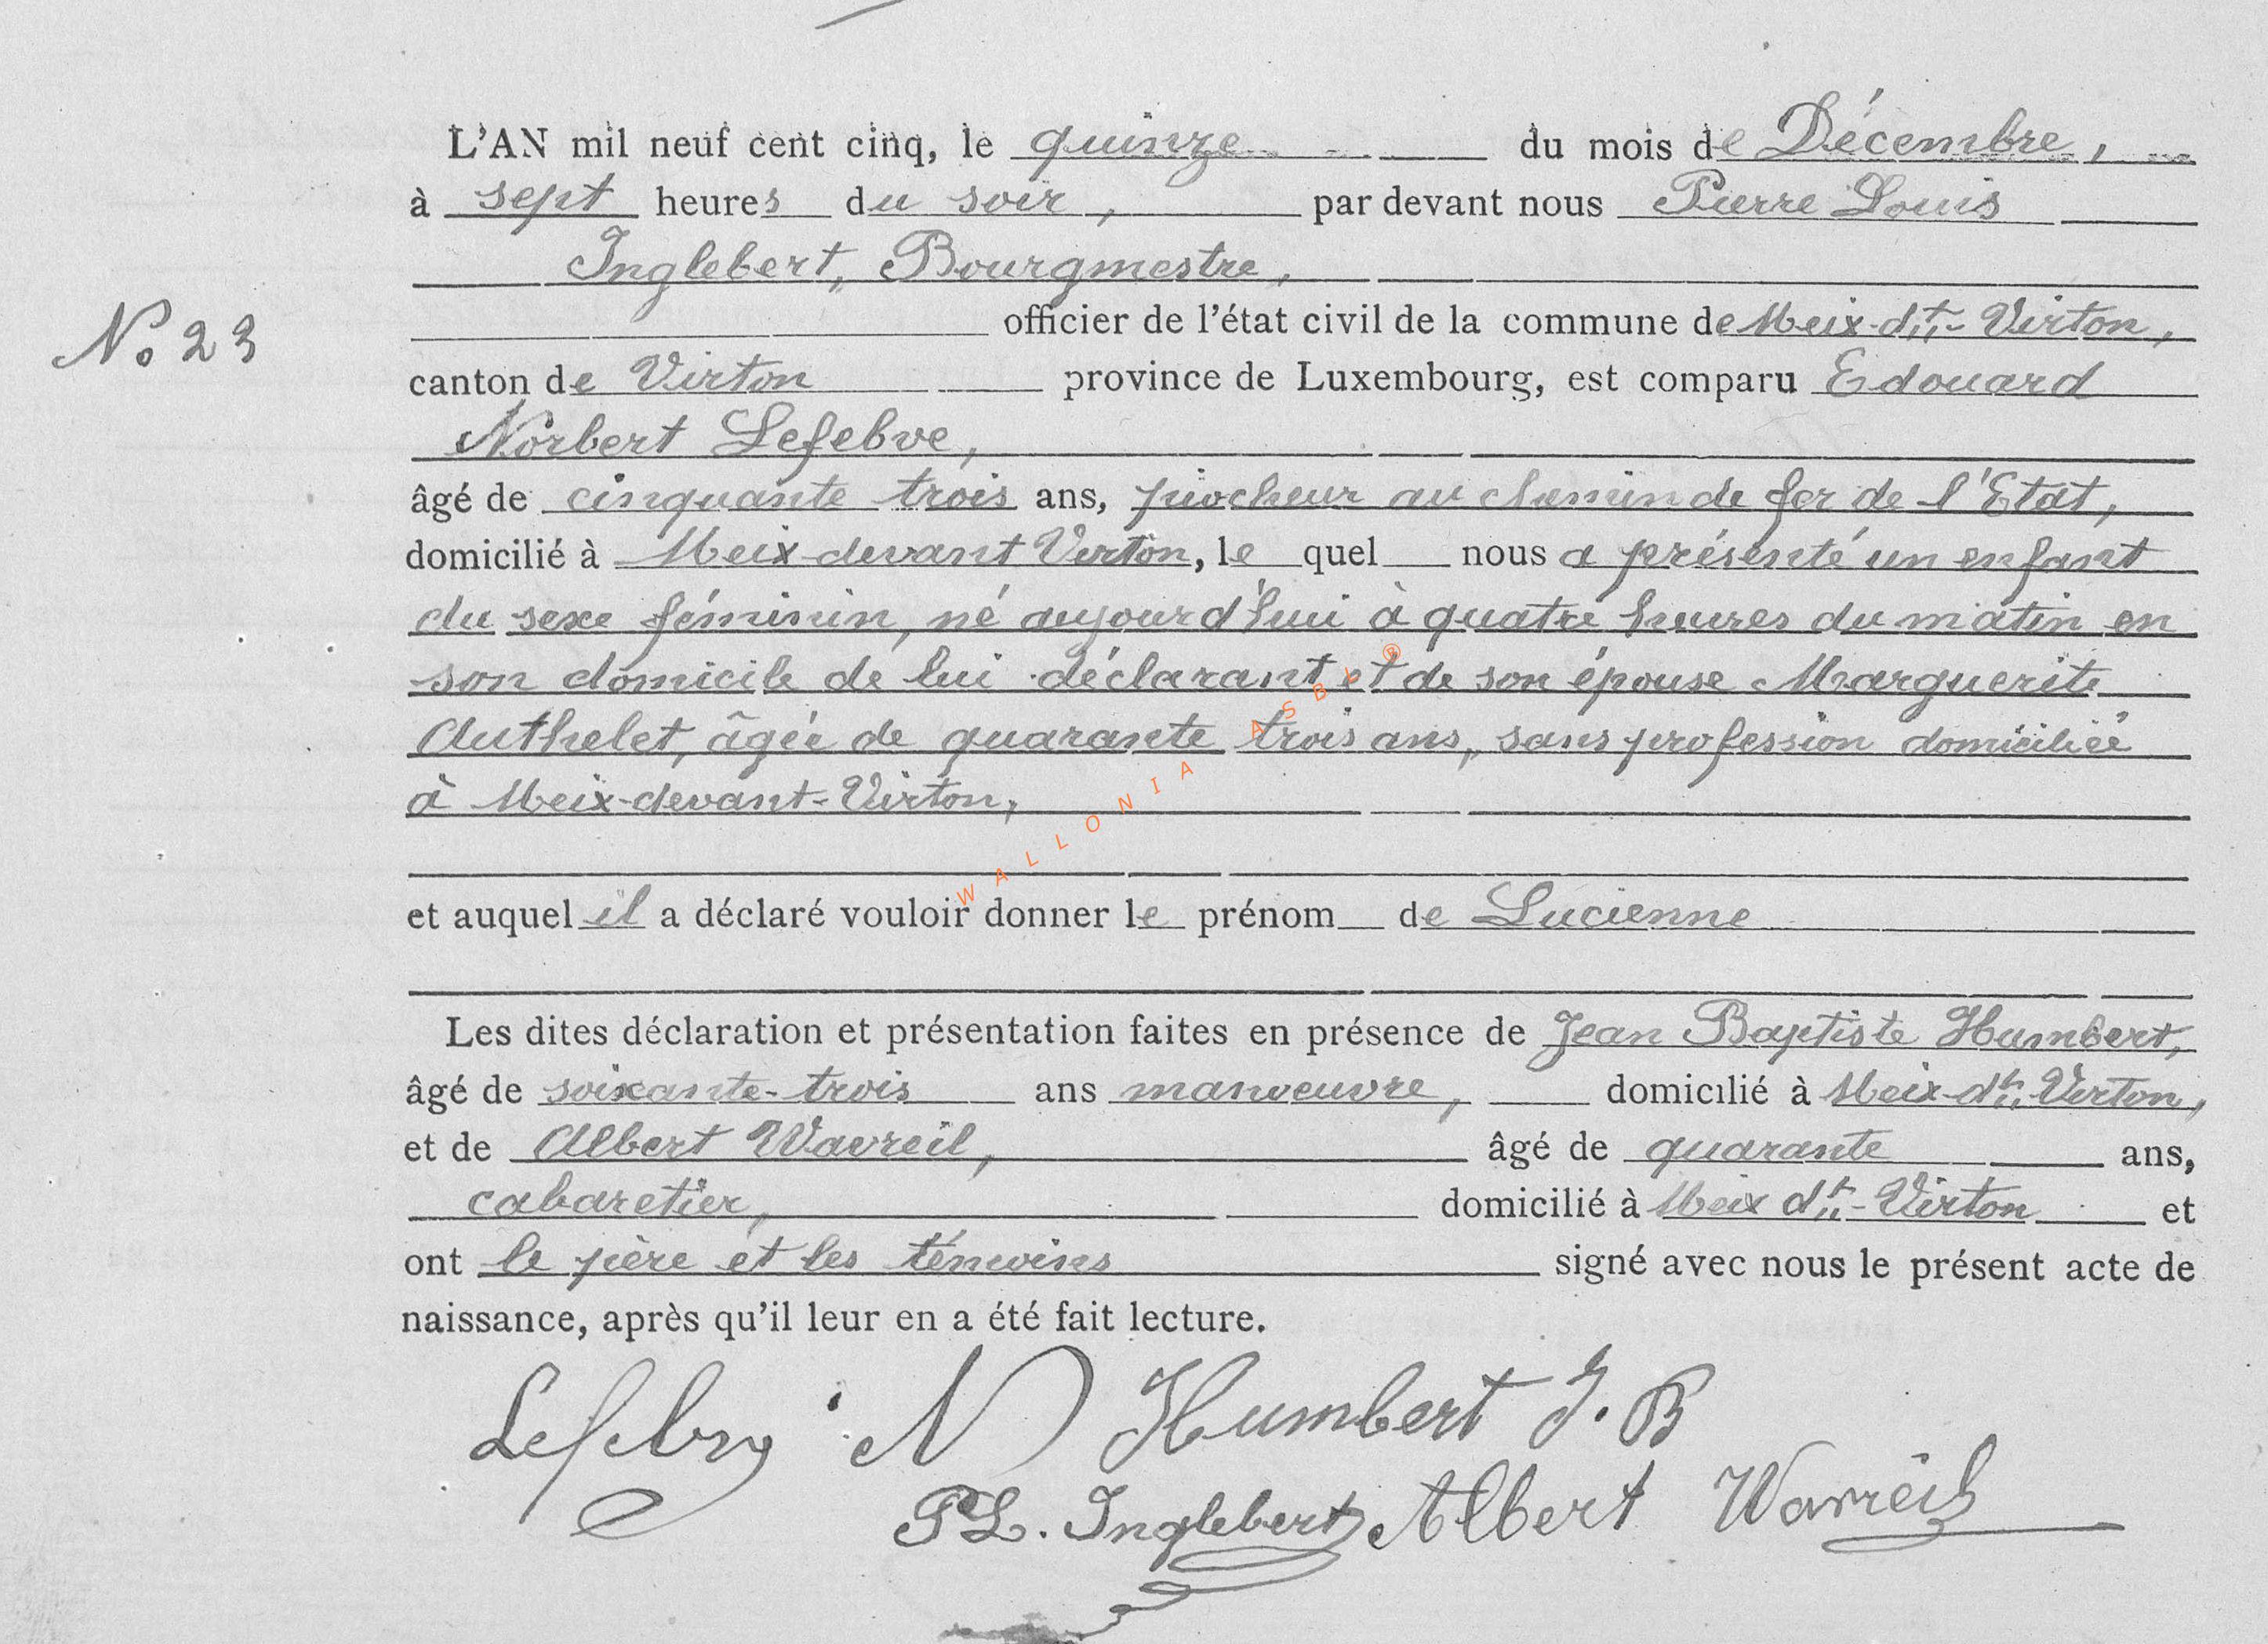 L'AN mil neuf cent cinq, le quinze du mois de Décembre,
à sept heures du soir, par devant nous Pierre Louis
Inglebert, Bourgmestre,
officier de l'état civil de la commune de Meix-dt-Virton,
N° 23
canton de Virton province de Luxembourg, est comparu Edouard
Norbert Lefebve,
âgé de cinquante trois ans, piocheur au chemin de fer de l'Etat,
domicilié à Meix-devant Virton, le quel nous a présenté un enfant
du sexe féminin, né aujourd'hui à quatre heures du matin en
son domicile de lui déclarant et de son épouse Marguerite
Authelet, âgée de quarante trois ans, sans profession domiciliée
à Meix-devant-Virton,
WALLONIA ASBL ®
et auquel il a déclaré vouloir donner le prénom de Lucienne
Les dites déclaration et présentation faites en présence de Jean Baptiste Humbert,
âgé de soixante-trois ans manoeuvre, domicilié à Meix-dt-Virton,
et de Albert Wavreil, âgé de quarante ans,
cabaretier, domicilié à Meix dt-Virton et
ont le père et les témoins signé avec nous le présent acte de
naissance, après qu'il leur en a été fait lecture.
Lefebve N Humbert J. B
PL. Inglebert Albert Wavreil